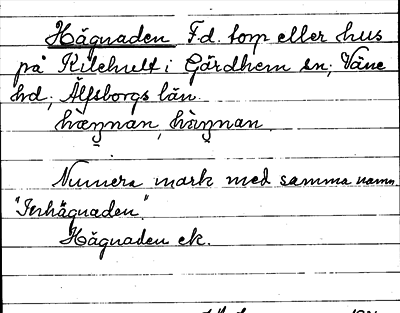 Hägnaden F.d. torp eller hus
på Kilehult i Gärdhem sn; Väne
hd; Älfsborgs län.
hæŋnan, hàŋnan
Numera mark med samma namn
"Inhägnaden".
Hägnaden ek.